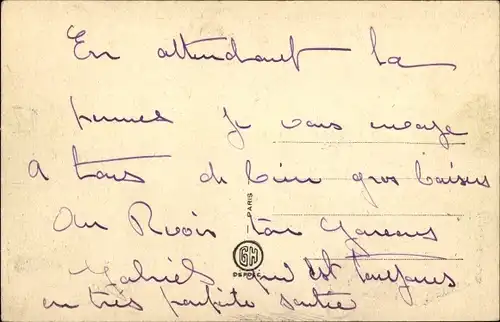 En attendant la
je vous envoye
a tous de bien gros baisers
Au Revoir ton
Gabriel qui est toujours
en très parfaite santée
PARIS
GH
DEPOSÉ